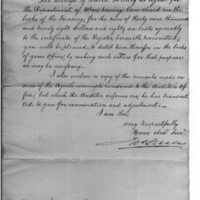 the Department of War having been closed on the
books of the Treasury, for the sum of thirty nine thousand
and twenty eight dollars and eighty six cents agreeably
to the certificate of the Register herewith transmitted,
you will be pleased to debit him therefor in the books
of your office by making such entries for that purpose
as may be necessary.
I also enclose a copy of the remarks made on
one of the Agents accounts rendered to the Auditor's Of
fice, but which the Auditor informs me, he has transmit
ted to you for examination and adjustment.
I am Sir,
very Respectfully
Your obed. Servt.